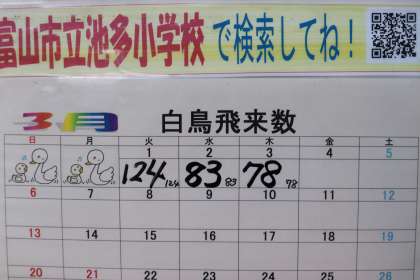 富山市立池多小学校 で検索してね！
3月 白鳥飛来数
日 月 火 水 木 金 土
1 2 3 4 5
124 124 83 83 78 78
6 7 8 9 10 11 12
13 14 15 16 17 18 19
20 21 22 23 24 25 26